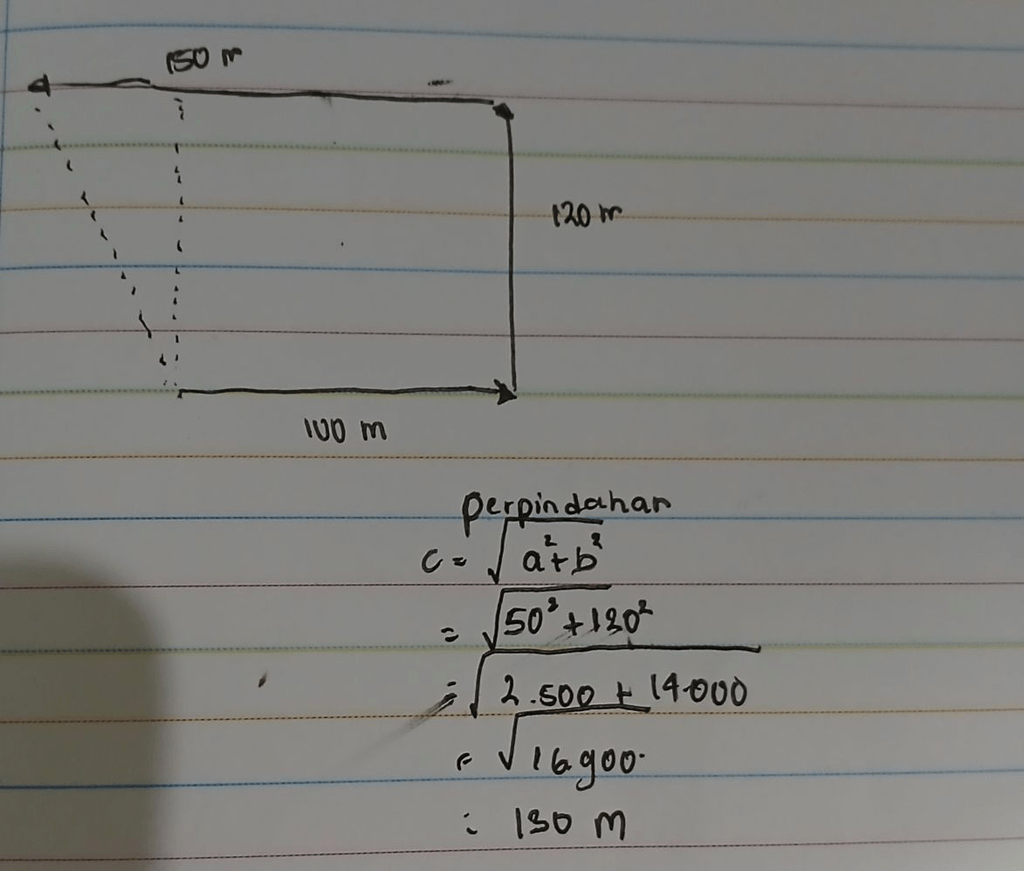 150 m
120 m
100 m
perpindahan
c = √a²+b²
= √50²+120²
= √2.500 + 14.000
= √16.900.
= 130 m